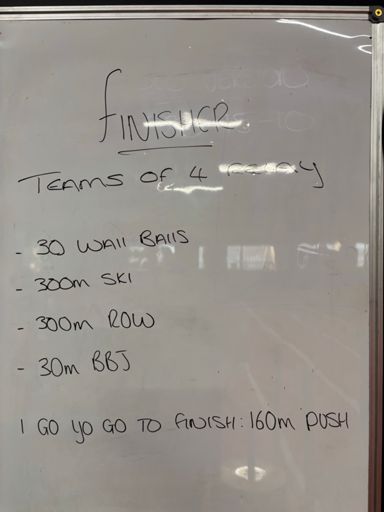 FINISHER
TEAMS OF 4 RELAY
- 30 WALL BALLS
- 300m SKI
- 300m ROW
- 30m BBJ
I GO YO GO TO FINISH: 160m PUSH